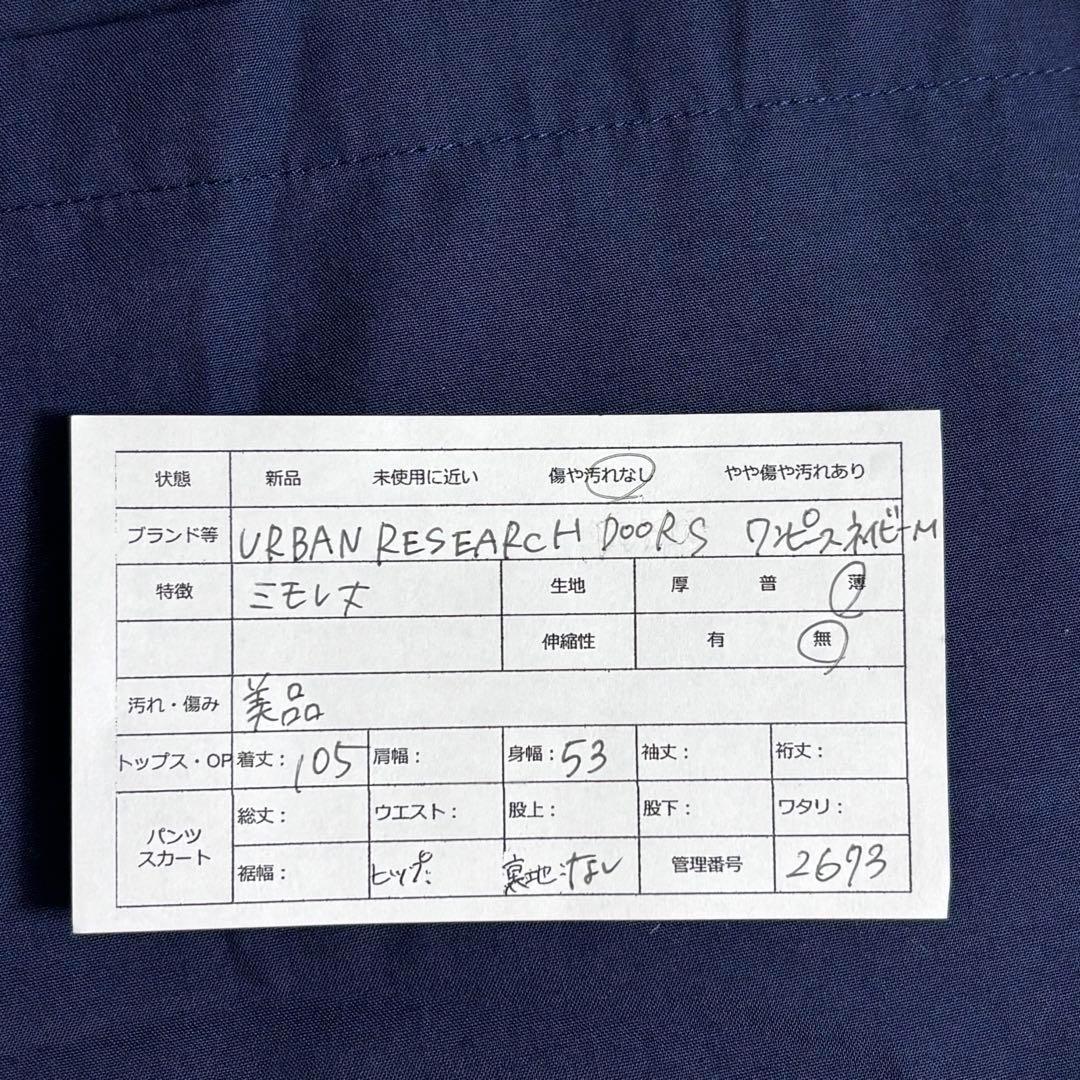 状態 新品 未使用に近い 傷や汚れなし やや傷や汚れあり
ブランド等 URBAN RESEARCH DOORS ワンピース ネイビー M
特徴 ミモレ丈 生地 厚 普 薄
伸縮性 有 無
汚れ・傷み 美品
トップス・OP 着丈：105 肩幅： 身幅：53 袖丈： 裄丈：
パンツ スカート 総丈： ウエスト： 股上： 股下： ワタリ：
裾幅： ヒップ： 裏地：なし 管理番号 2673